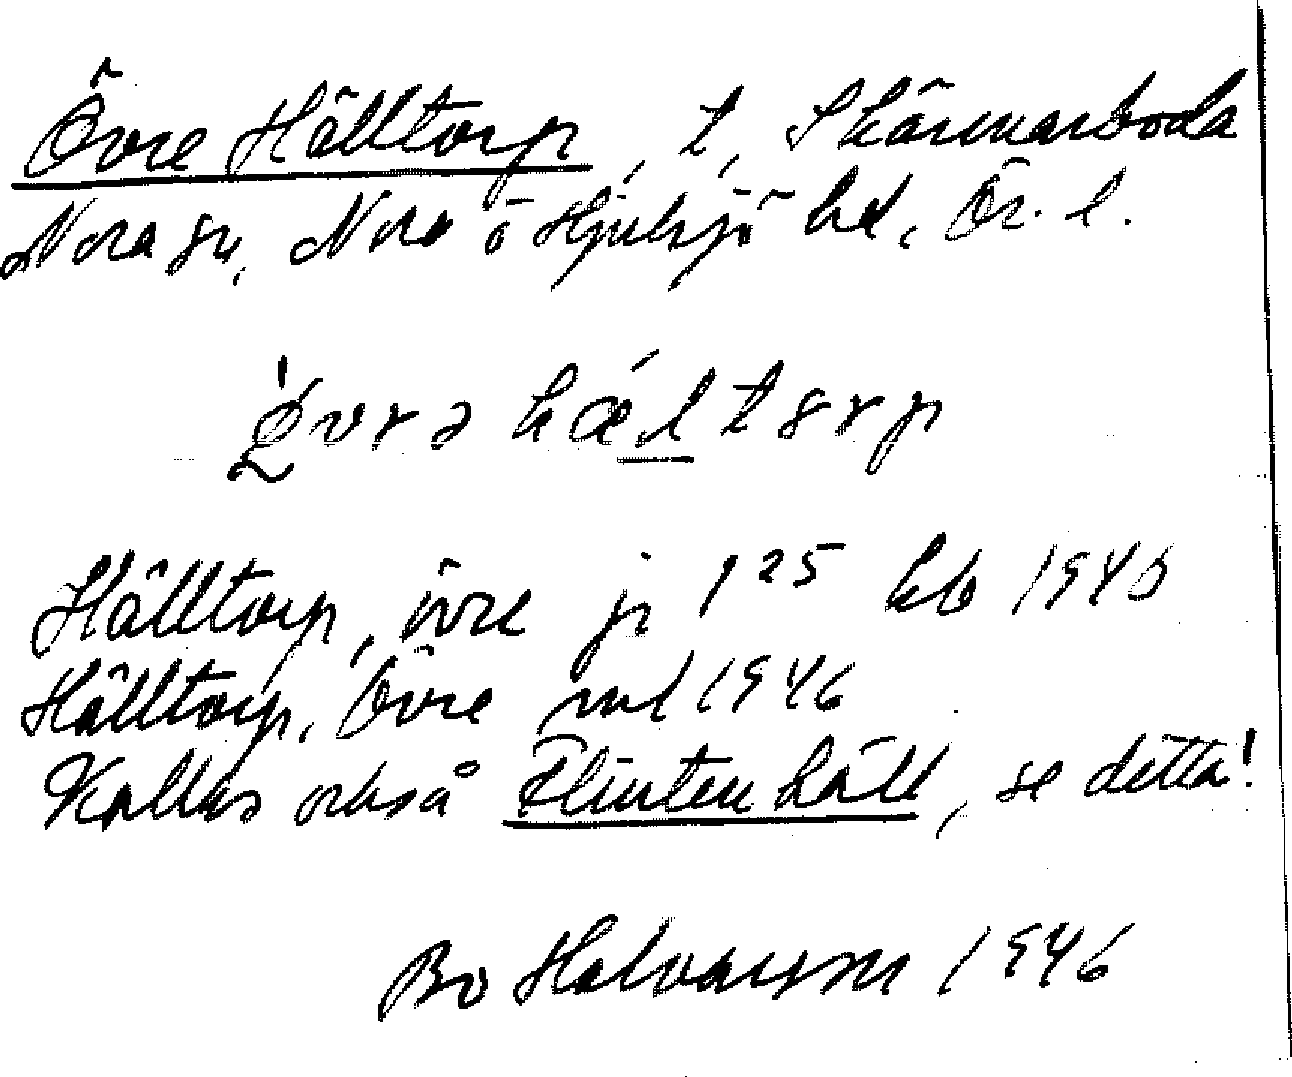 Övre Hälltorp, t, Skärmarboda
Nora sn, Nora o Hjulsjö hd, Ör. l.
Hälltorp, övre jr 1²⁵ hb 1940
Hälltorp, Övre 1946
Kallas också Flintenhäll, se detta!
Bo Halvarson 1946